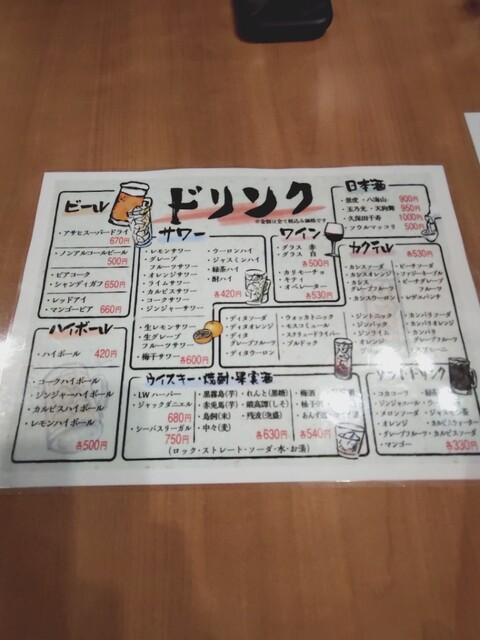 ドリンク
※金額は全て税込み価格です
ビール
・アサヒスーパードライ
670円
・ノンアルコールビール
500円
・ビアコーク
・シャンディガフ 650円
・レッドアイ
・マンゴービア 660円
ハイボール
・ハイボール 420円
・コークハイボール
・ジンジャーハイボール
・カルピスハイボール
・レモンハイボール
各500円
サワー
・レモンサワー
・グレープ
フルーツサワー
・オレンジサワー
・ライムサワー
・カルピスサワー
・コークサワー
・ジンジャーサワー
・ウーロンハイ
・ジャスミンハイ
・緑茶ハイ
・酎ハイ
各420円
・生レモンサワー
・生グレープ
フルーツサワー
・梅干サワー 各600円
ワイン
・グラス 赤
・グラス 白
各500円
・カリモーチョ
・キティ
・オペレーター
各530円
日本酒
・黒虎・八海山 900円
・玉乃光・天狗舞 950円
・久保田千寿 1000円
・ソウルマッコリ 500円
カクテル 各530円
・カシスソーダ
・カシスオレンジ
・カシス
グレープフルーツ
・カシスウーロン
・ピーチソーダ
・ファジーネーブル
・ピーチグレープ
フルーツ
・レゲエパンチ
・ディタソーダ
・ディタオレンジ
・ディタ
グレープフルーツ
・ディタウーロン
・ウォッカトニック
・モスコミュール
・スクリュードライバー
・ブルドック
・ジントニック
・ジンバック
・ジンライム
・オレンジ
・カンパリソーダ
・カンパリオレンジ
・カンパリ
グレープフルーツ
・スプモーニ
ウイスキー・焼酎・果実酒
・LW ハーパー
・ジャックダニエル
680円
・シーバスリーガル
750円
・黒霧島(芋)
・赤兎馬(芋)
・島飼(米)
・中々(麦)
・れんと(黒糖)
・鍛高譚(しそ)
・残波(泡盛)
各630円
・梅酒
・柚子
・あんず
各540円
(ロック・ストレート・ソーダ・水・お湯)
ソフトドリンク
・コカコーラ
・ジンジャエール
・メロンソーダ
・オレンジ
・グレープフルーツ
・マンゴー
・緑茶
・ジャスミン茶
・カルピスウォーター
・カルピスソーダ
各330円